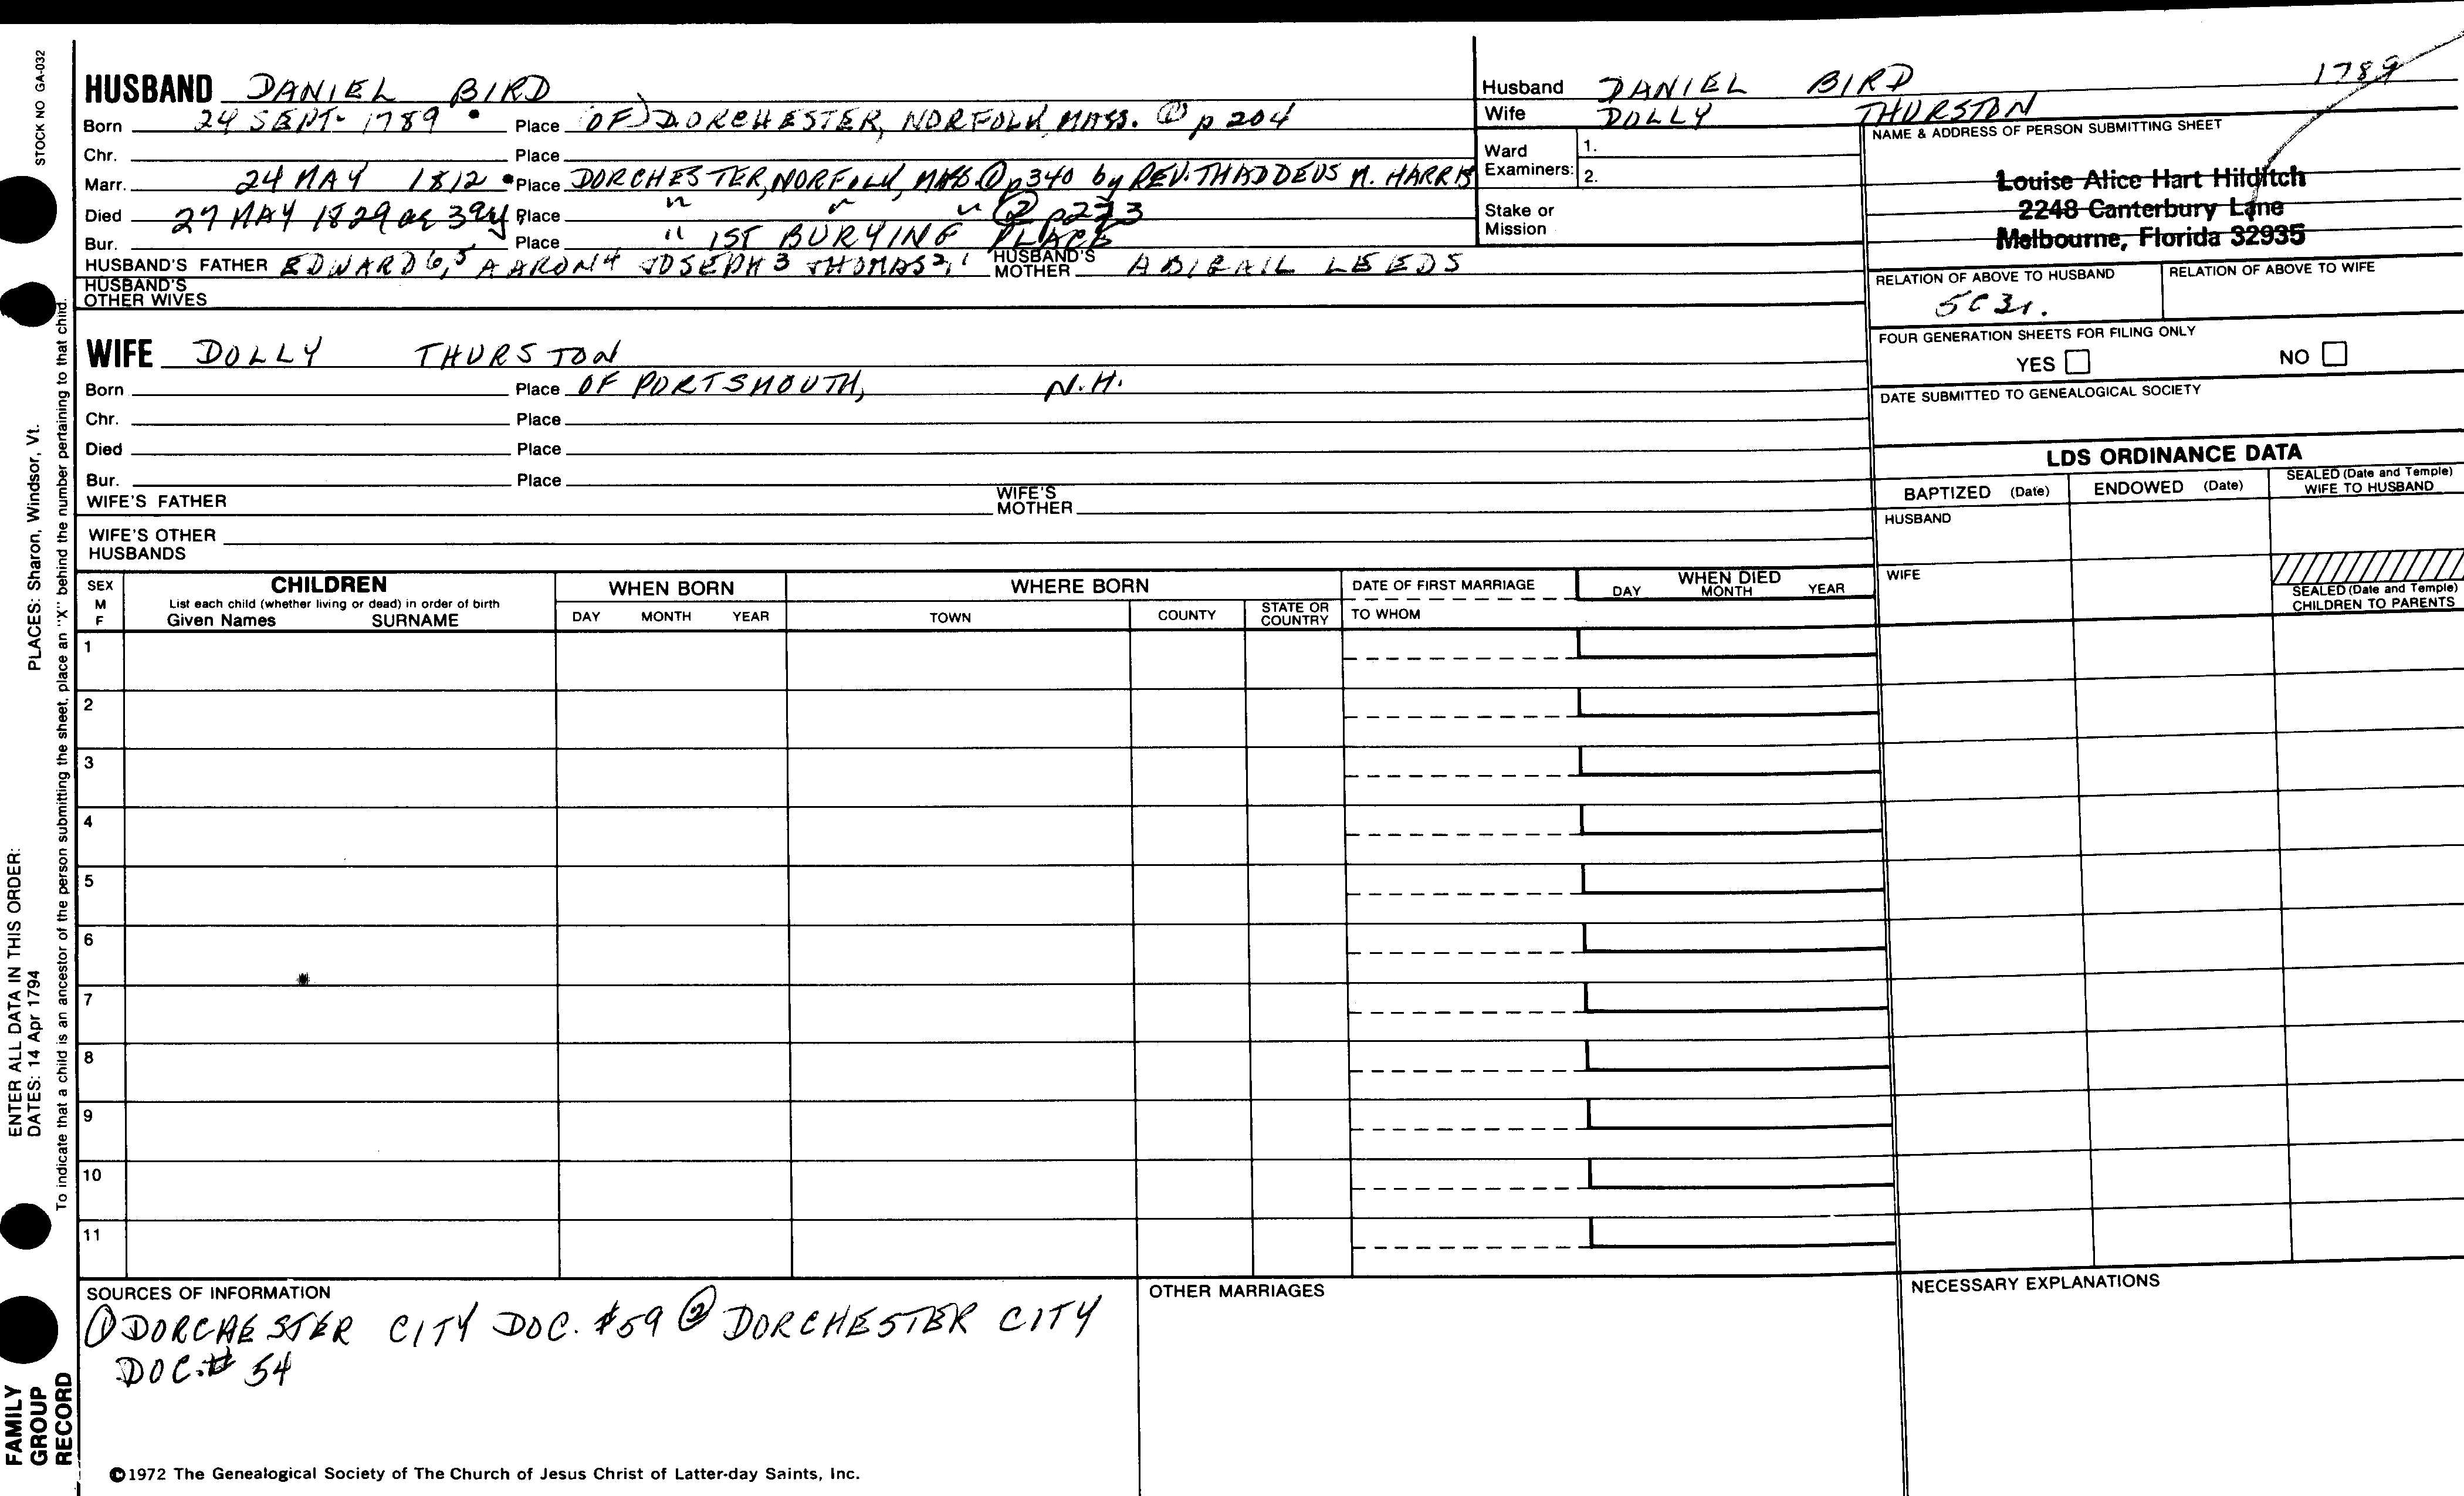 STOCK NO GA-032
PLACES: Sharon, Windsor, Vt.
ENTER ALL DATA IN THIS ORDER:
DATES: 14 Apr 1794
To indicate that a child is an ancestor of the person submitting the sheet, place an "X" behind the number pertaining to that child.
FAMILY
GROUP
RECORD
HUSBAND DANIEL BIRD
Born 24 SEPT. 1789 Place (OF) DORCHESTER, NORFOLK, MASS. ① p 204
Chr. Place
Marr. 24 MAY 1812 Place DORCHESTER, NORFOLK, MASS. ① p340 by REV. THADDEUS M. HARRIS
Died 27 MAY 1829 ae 39y Place " " " ② p273
Bur. Place " 1ST BURYING PLACE
HUSBAND'S FATHER EDWARD 6,5 AARON 4 JOSEPH 3 THOMAS 2,1 HUSBAND'S MOTHER ABIGAIL LEEDS
HUSBAND'S
OTHER WIVES
WIFE DOLLY THURSTON
Born Place OF PORTSMOUTH, N.H.
Chr. Place
Died Place
Bur. Place
WIFE'S FATHER WIFE'S MOTHER
WIFE'S OTHER
HUSBANDS
Husband DANIEL BIRD 1789
Wife DOLLY THURSTON
Ward
Examiners:
1.
2.
Stake or
Mission
NAME & ADDRESS OF PERSON SUBMITTING SHEET
Louise Alice Hart Hilditch
2248 Canterbury Lane
Melbourne, Florida 32935
RELATION OF ABOVE TO HUSBAND RELATION OF ABOVE TO WIFE
5C3r.
FOUR GENERATION SHEETS FOR FILING ONLY
YES NO
DATE SUBMITTED TO GENEALOGICAL SOCIETY
LDS ORDINANCE DATA
BAPTIZED (Date) ENDOWED (Date) SEALED (Date and Temple) WIFE TO HUSBAND
HUSBAND
WIFE
SEALED (Date and Temple)
CHILDREN TO PARENTS
SEX
M
F
CHILDREN
List each child (whether living or dead) in order of birth
Given Names SURNAME
WHEN BORN
DAY MONTH YEAR
WHERE BORN
TOWN COUNTY STATE OR COUNTRY
DATE OF FIRST MARRIAGE
TO WHOM
WHEN DIED
DAY MONTH YEAR
1
2
3
4
5
6
7
8
9
10
11
SOURCES OF INFORMATION
① DORCHESTER CITY DOC. #59 ② DORCHESTER CITY
DOC. # 54
OTHER MARRIAGES
NECESSARY EXPLANATIONS
©1972 The Genealogical Society of The Church of Jesus Christ of Latter-day Saints, Inc.